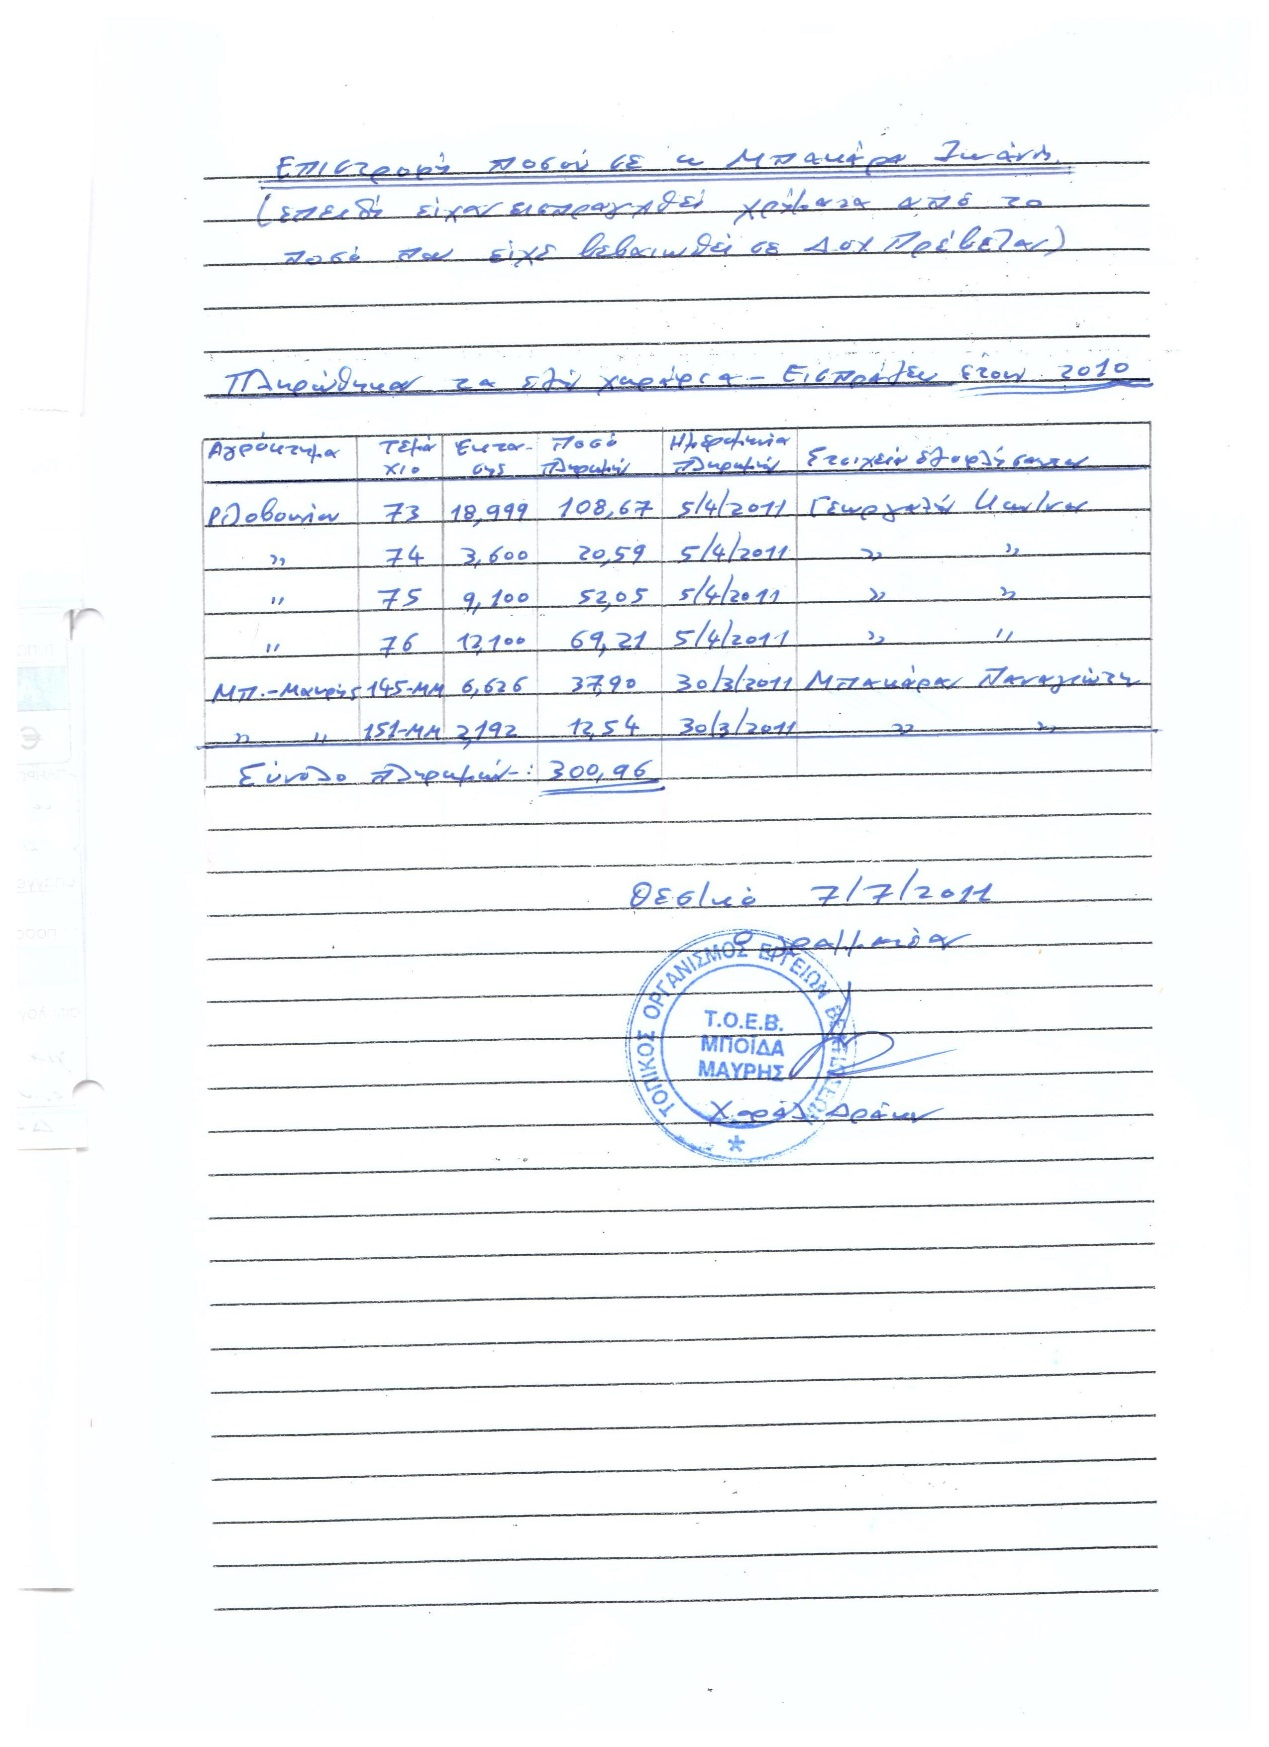 Επιστροφή ποσού σε κ Μπακάρα Ιωάννη
(επειδή είχαν εισπραχθεί χρήματα από το
ποσό που είχε βεβαιωθεί σε ΔΟΥ Πρέβεζας)
Πληρώθηκαν τα εξής χωράφια - Εισπράξεις έτους 2010
Αγρόκτημα Τεμά Εκτα- Ποσό Ημερομηνία
χιο σης Πληρωμής πληρωμής Στοιχεία εξοφλήσαντα
73 18,999 108,67 5/4/2011 Γεωργαλής
" 74 3,600 20,59 5/4/2011 " "
" 75 9,100 52,05 5/4/2011 " "
" 76 12,100 69,21 5/4/2011 " "
Μπ.-Μαυρής 145-ΜΜ 6,626 37,90 30/3/2011 Μπακάρας Παναγιώτης
" " 151-ΜΜ 2,192 12,54 30/3/2011 " "
Σύνολο πληρωμών: 300,96
Θεσ/κό 7/7/2011
Ο Γραμματέας
ΤΟΠΙΚΟΣ ΟΡΓΑΝΙΣΜΟΣ ΕΓΓΕΙΩΝ ΒΕΛΤΙΩΣΕΩΝ
Τ.Ο.Ε.Β.
ΜΠΟΪΔΑ
ΜΑΥΡΗΣ
Χαράλ Δράκος